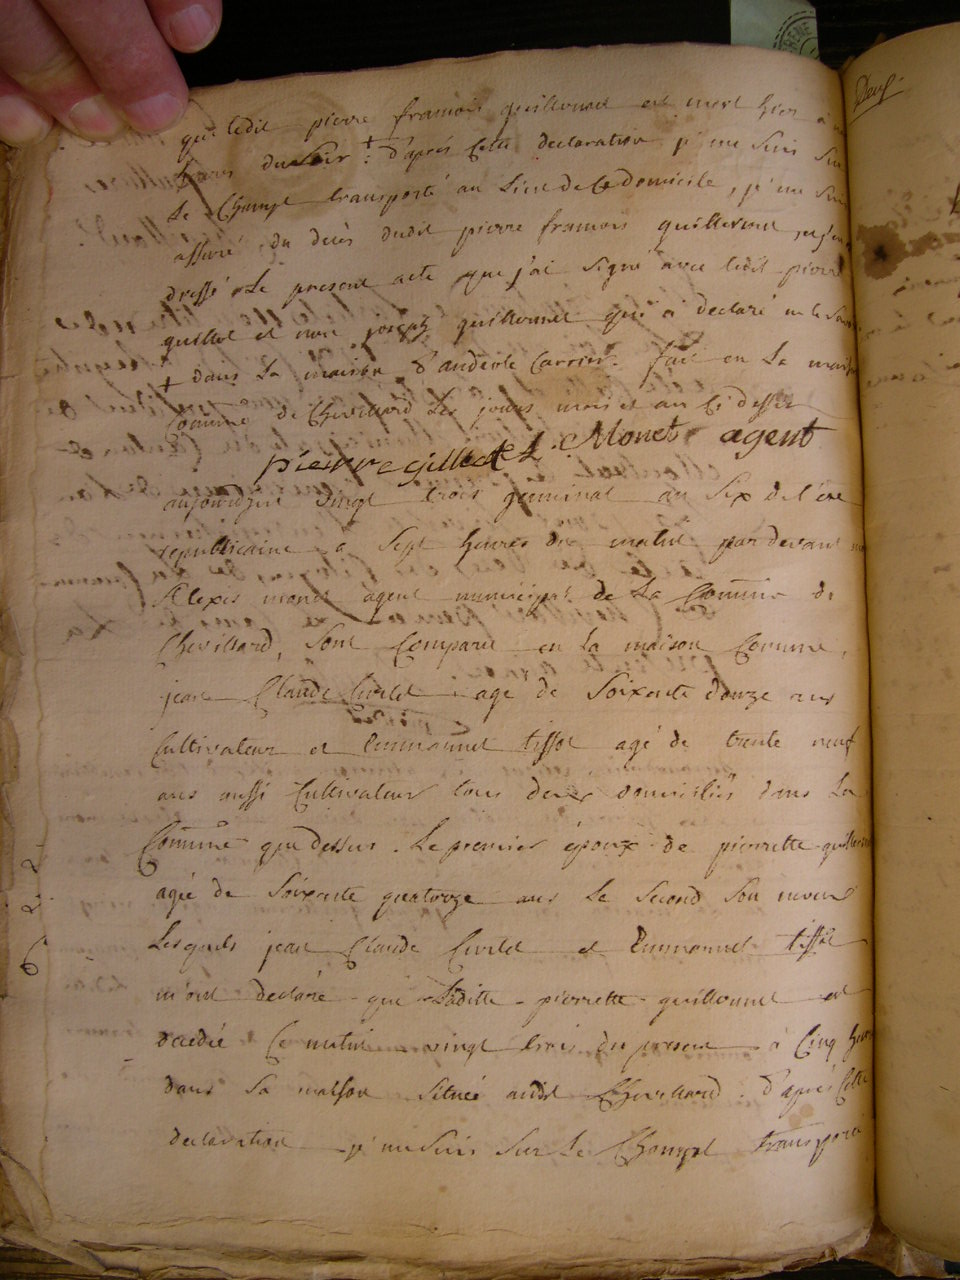 que ledit pierre francois guillermet est mort hier à
heures du soir + : d'aprés Cette declaration j' me suis sur
Le Champt transporté au Lieu de Ce domicile, j' me suis
assuré, du decés dudit pierre francois guillermet, et j'en
dressé Le present acte que j'ai signé avec ledit pierre
guillot et non joseph guillermet qui a declaré ne le savoir
+ dans La maison d' Carrier. fait en La maison
Commune de Chevillard Les jours mois et an Ci dessus
pierre gillot A. Monet agent
aujourdhui vingt trois germinal an Six de l'ere
republicaine a Sept heures du matin pardevant
Alexis monet agent municipal de La Commune de
Chevillard, Sont Comparu en La maison Commune,
jean Claude Civilet agé de Soixente douze ans
Cultivateur et Emmanuel tissot agé de trente neuf
ans aussi Cultivateur tous deux domiciliés dans La
Commune que dessus. Le premier époux de pierrette guillermet
agée de Soixente quatorze ans Le Second Son neveu
Lesquels jean Claude Civilet et Emmanuel tissot
m'ont declaré que Laditte pierrette guillermet est
decedée Ce matin vingt trois du present à Cinq heures
dans Sa maison Située audit Chevillard : d'aprés Cette
declaration j' me Suis Sur Le Champt transporté
6. 2. 2.
Deux